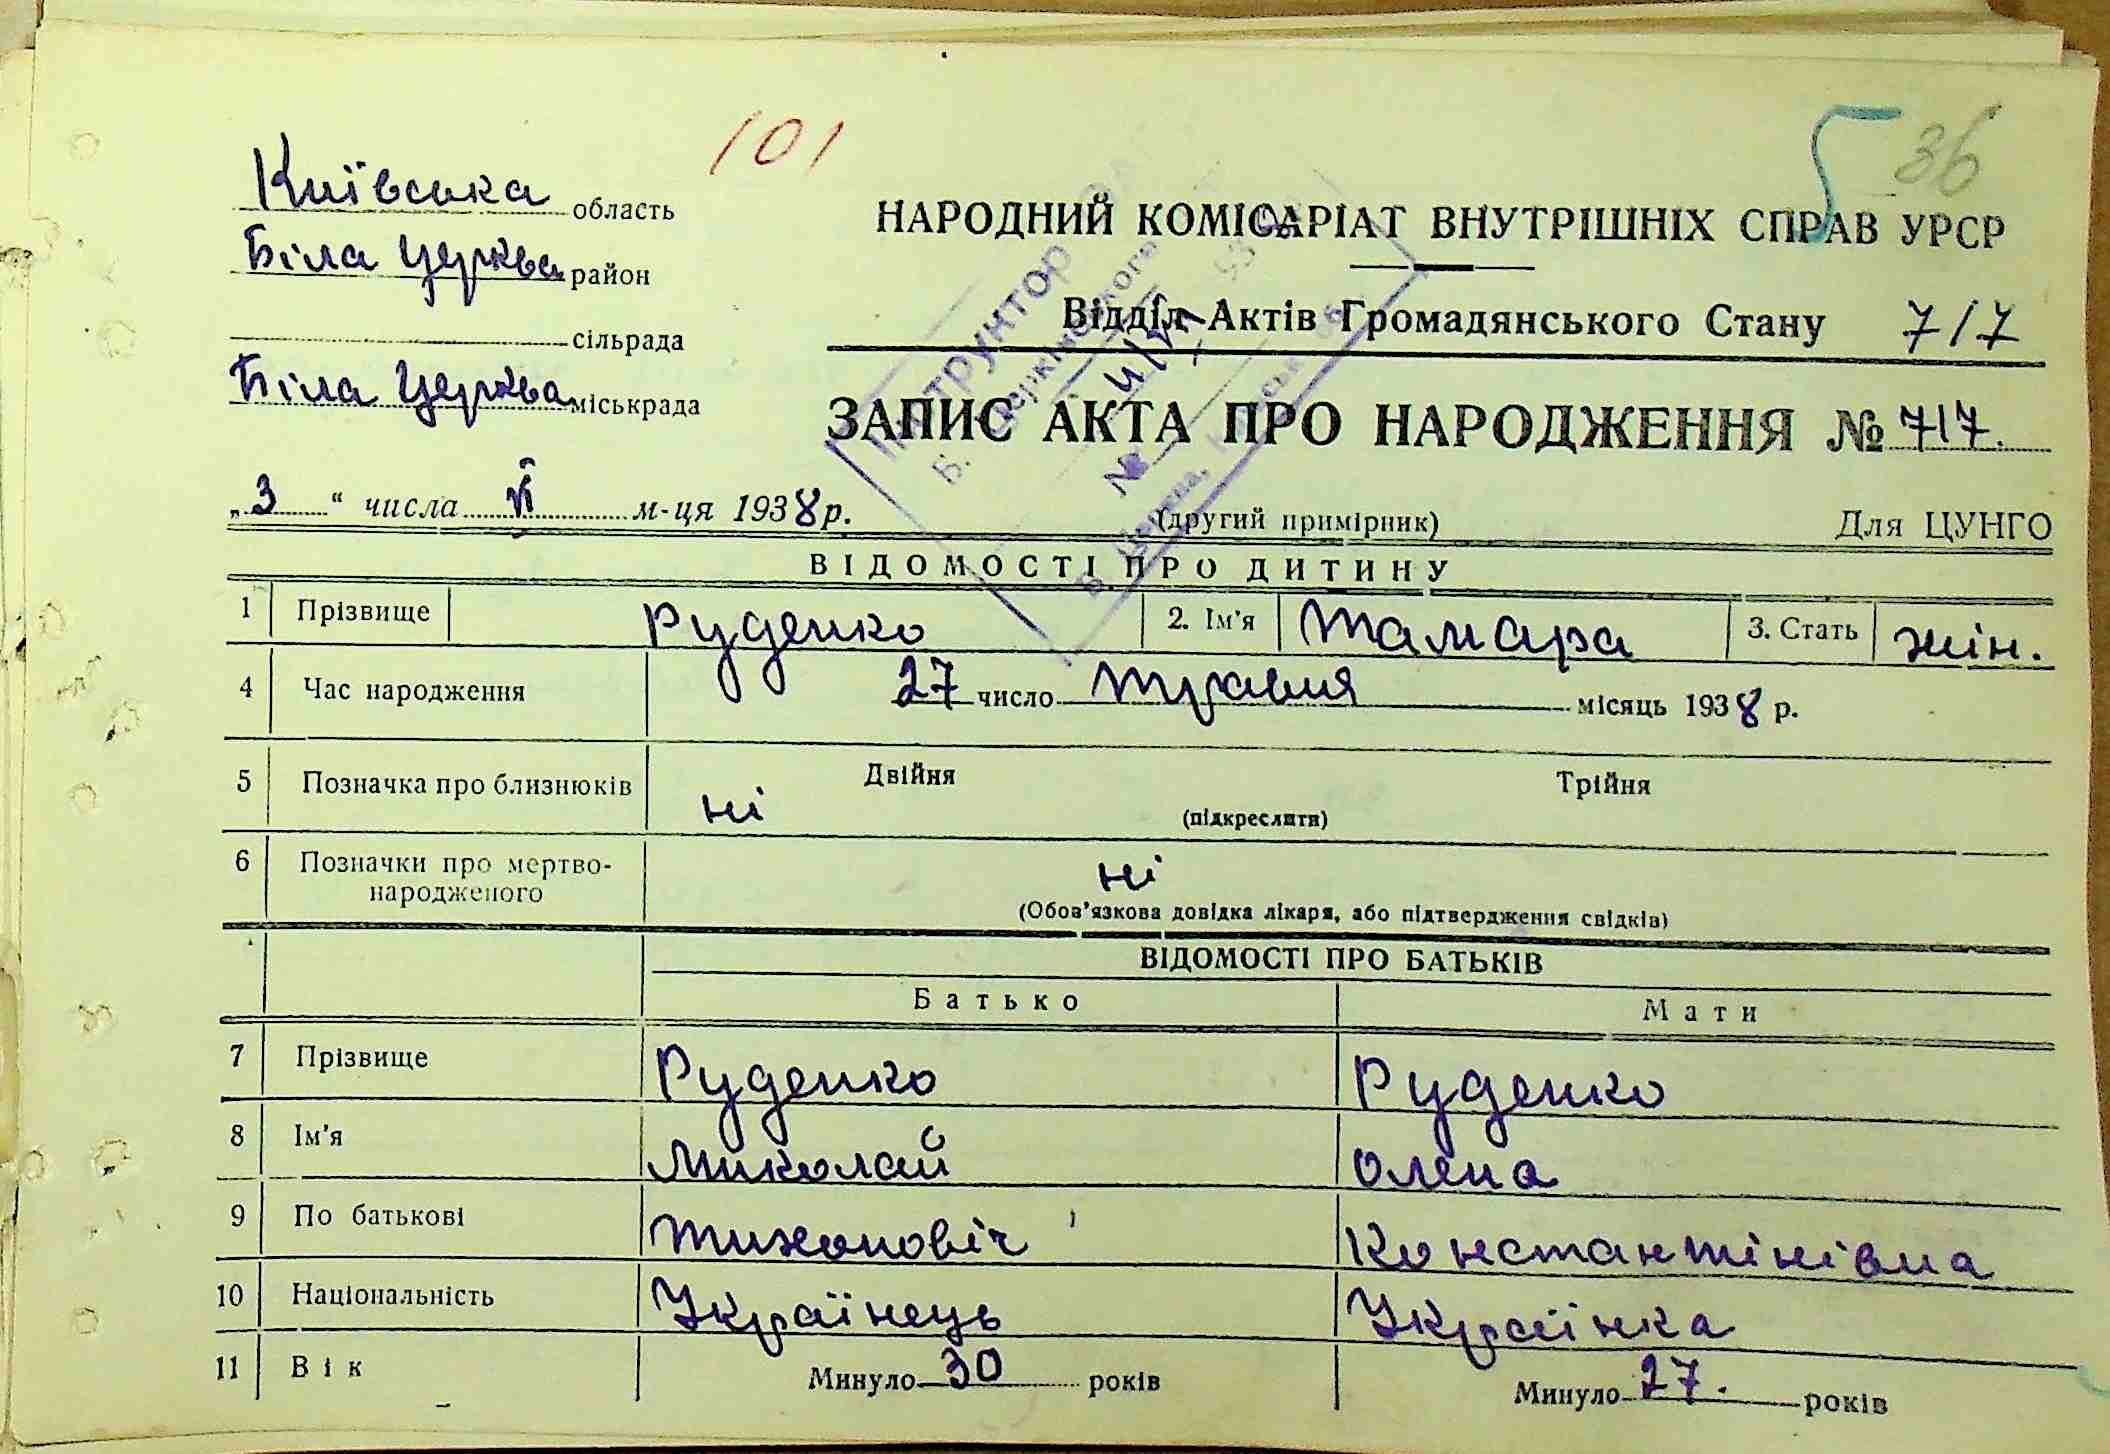 101
5 36
Київська область
Біла Церква район
сільрада
Біла Церква міськрада
НАРОДНИЙ КОМІСАРІАТ ВНУТРІШНІХ СПРАВ УРСР
Відділ Актів Громадянського Стану 717
ЗАПИС АКТА ПРО НАРОДЖЕННЯ № 717.
„3“ числа VI м-ця 1938 р.
(другий примірник) Для ЦУНГО
ВІДОМОСТІ ПРО ДИТИНУ
1 Прізвище Руденко 2. Ім'я Тамара 3. Стать жін.
4 Час народження 27 число травня місяць 1938 р.
5 Позначка про близнюків ні Двійня Трійня
(підкреслити)
6 Позначки про мертво-
народженого ні
(Обов'язкова довідка лікаря, або підтвердження свідків)
ВІДОМОСТІ ПРО БАТЬКІВ
Батько Мати
7 Прізвище Руденко Руденко
8 Ім'я Миколай Олена
9 По батькові Тихоновіч Констант​інівна
10 Національність Українець Українка
11 Вік Минуло 30 років Минуло 27. років